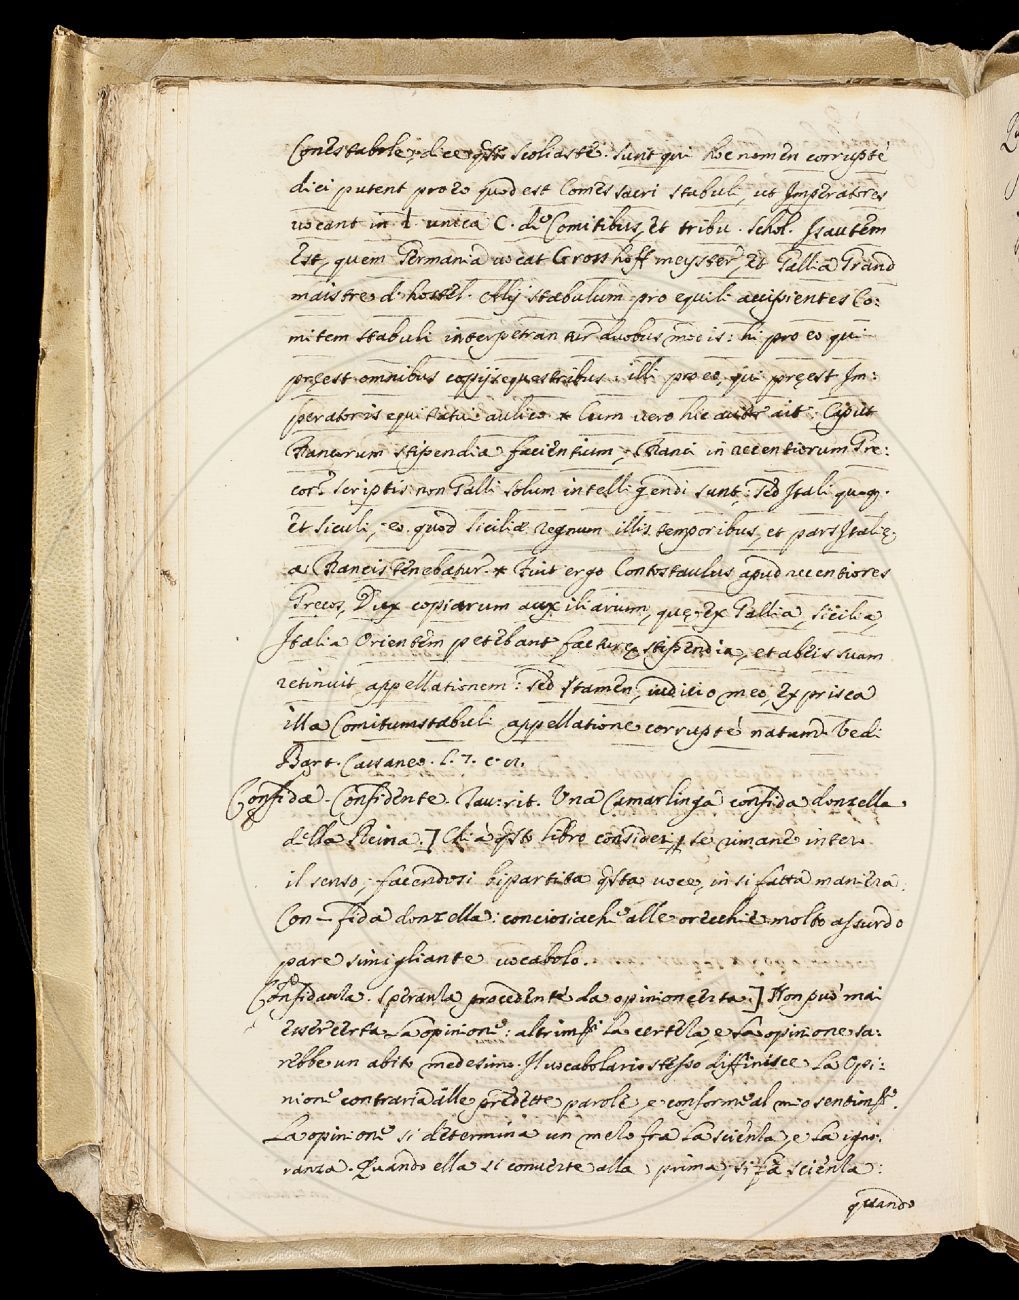 Conestabole, dice qsto scoliaste. Sunt qui hoc nomen corruptè
dici putent pro eo quod est Comes sacri stabuli, ut Imperatores
vocant in l. unica C. de Comitibus, et tribu. Schol. Is autem
est, quem Germania vocat Gross hoff meyster, et Gallia Grand
maistre d'hostel. Alij stabulum pro equili accipientes Co:
mitem stabuli interpetrantur duobus modis: hi pro eo qui
pręest omnibus copijs equestribus, illi pro eo, qui pręest Im:
peratoris equitatui aulico * Cum vero hic ait: Caput
Francorum stipendia facientium, Franci in recentiorum Gre:
cor. scriptis non Galli solum intelligendi sunt, sed Itali quoq.
et Siculi, eo quod Siciliæ regnum illis temporibus, et pars Italię,
a Francis tenebatur. * Fuit ergo Contostaulus apud recentiores
Grecos, Dux copiarum auxiliarium, quę ex Gallia, Sicilia,
Italia Orientem petebant facturę stipendia, et ab eis suam
retinuit appellationem: sed tamen, iudicio meo, ex prisca
illa Comitumstabuli appellatione corruptè natum. Vedi
Bart. Cassaneo.
Confida. Confidente. Tau: rit. Una Camarlinga confida donzella
della Reina.] Chi à qsto libro consideri, se rimane inter.
il senso, facendosi bipartita qsta voce, in sì fatta maniera,
Con-fida donzella: conciosiache alle orecchie molto assurdo
pare simigliante vocabolo.
Confidanza. Speranza procedente da opinione certa.] Non può mai
esser certa la opinione: altrimti la certeza, e la opinione sa:
rebbe un abito medesimo. Il vocabolario stesso diffinisce la Opi:
nione contraria alle predette parole, e conforme al mio sentimto.
La opinione si determina un melo fra la scienza, e la igno:
ranza. Quando ella si converte alla prima, si fa scienza:
quando